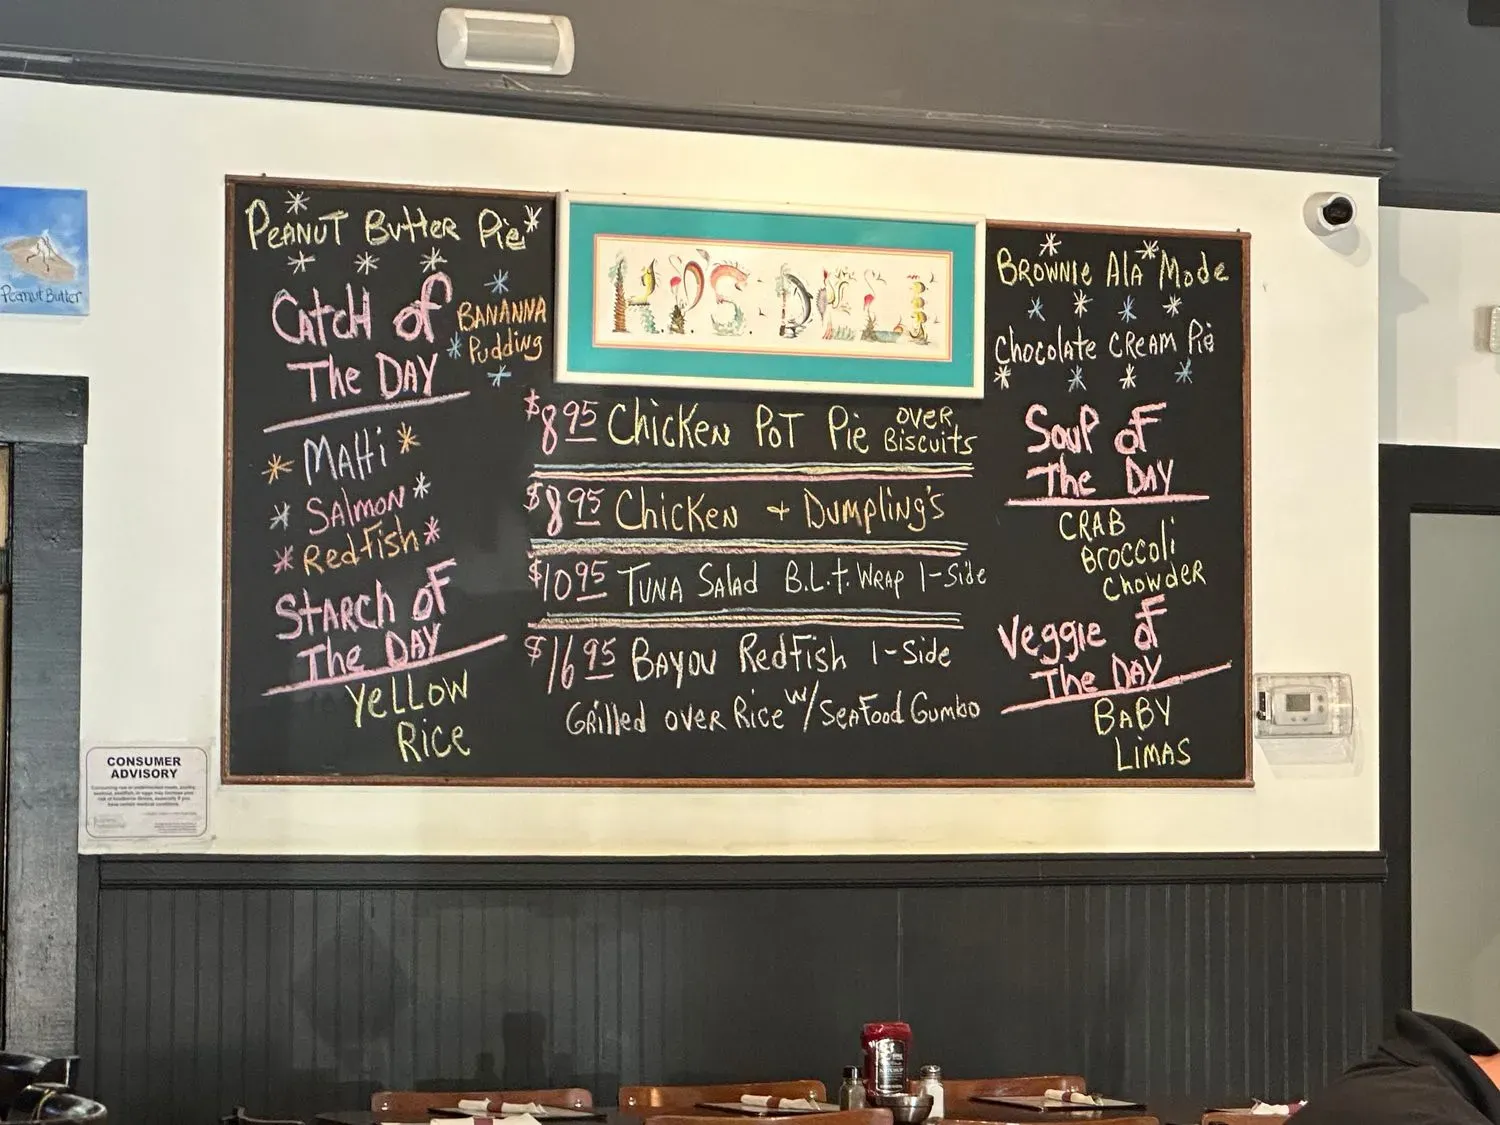 PEANUT BUTTER Pie
CATCH of
The DAY
BANANNA
Pudding
MAHi
SALMON
RedFish
STARCH oF
The DAY
YeLLOW
Rice
$8.95 ChicKen PoT Pie over
Biscuits
$8.95 Chicken + Dumpling's
$10.95 TUNA Salad B.L.t. WRAP 1-Side
$16.95 BAYOU RedFish 1-Side
GRilled over Rice w/ SeaFood Gumbo
BROWNIE ALA Mode
Chocolate CREAM Pie
SouP oF
The DAY
CRAB
BRoccoli
ChowdeR
Veggie oF
The DAY
BABY
LiMAS
Peanut Butter
CONSUMER
ADVISORY